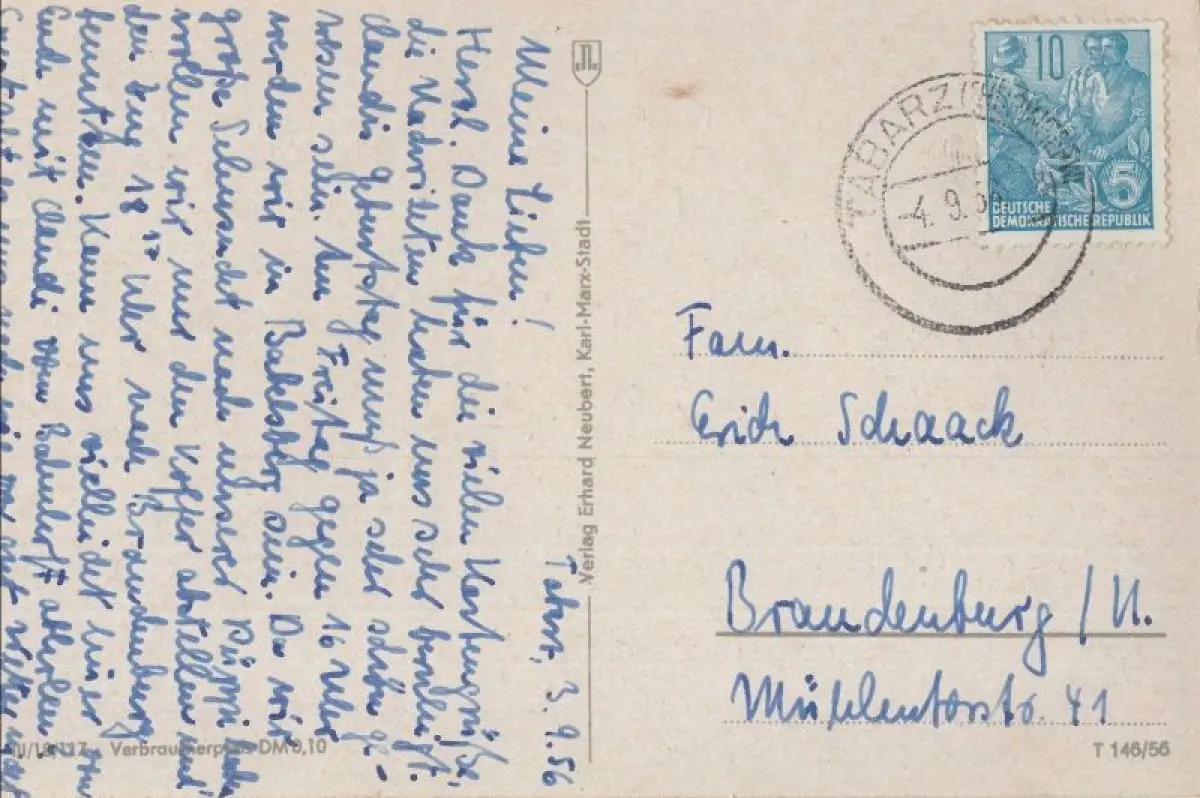 Tabarz, 3.9.56
Meine Lieben!
Herzl. Dank für die vielen Kartengrüße,
die Nachrichten haben uns sehr beruhigt.
Claudis Geburtstag muß ja sehr schön ge-
wesen sein. Am Freitag gegen 16 Uhr
werden wir in Babelsberg sein. Da wir
große Sehnsucht nach unserer Püppi haben
wollen wir nur den Koffer abstellen und
den Zug 18 Uhr nach Brandenburg
benutzen. Kann uns vielleicht einer von
Euch mit Claudi vom Bahnhof abholen.
III/18/117 Verbraucherpreis DM 0,10
Verlag Erhard Neubert, Karl-Marx-Stadt
TABARZ (THÜR WALD)
-4.9.56
10
5
DEUTSCHE
DEMOKRATISCHE REPUBLIK
Fam.
Erich Schaack
Brandenburg/H.
Mühlentorstr. 41
T 146/56